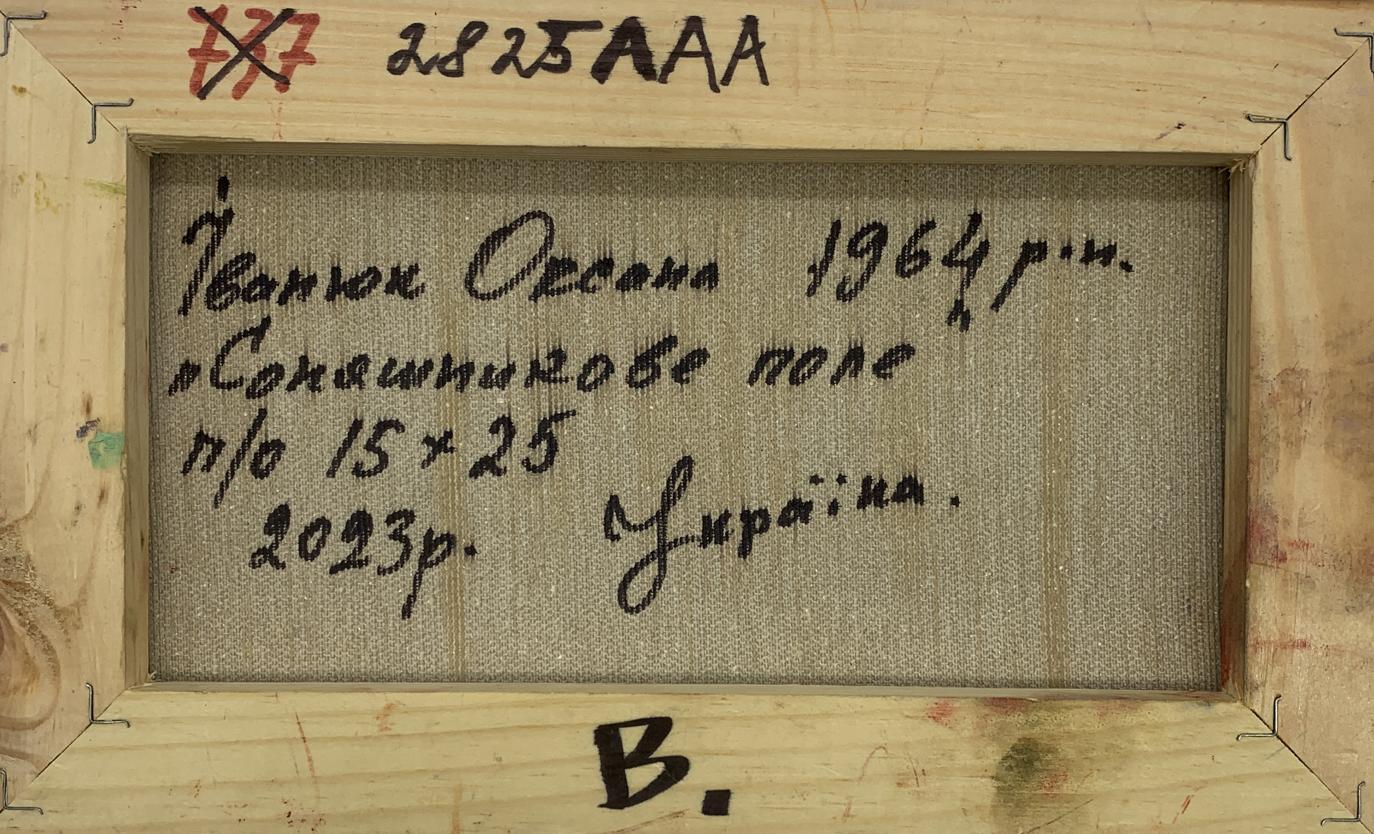 737 2825AAA
Іванюк Оксана 1964 р.н.
"Соняшникове поле"
п/о 15х25
2023р. Україна.
В.